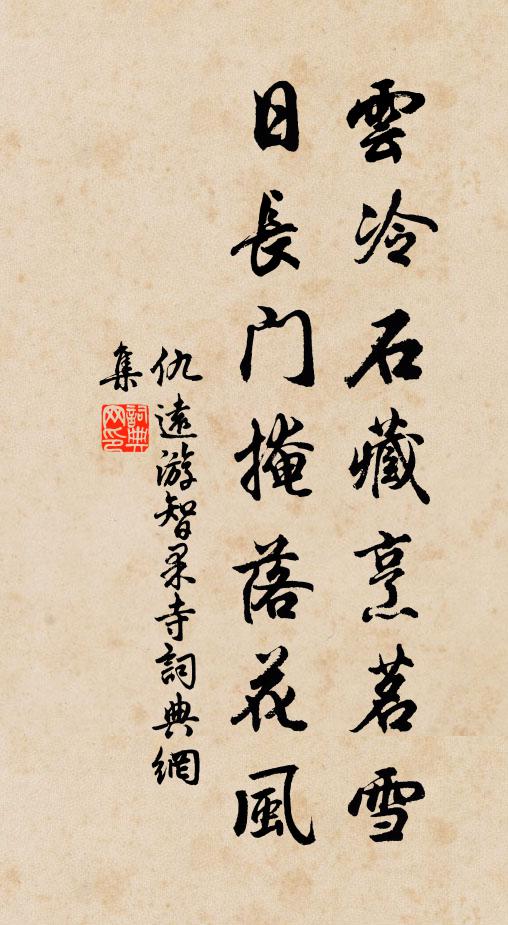 雲冷石藏烹茗雪
日長門掩落花風
仇遠游智果寺詞典網
集
詞典网印